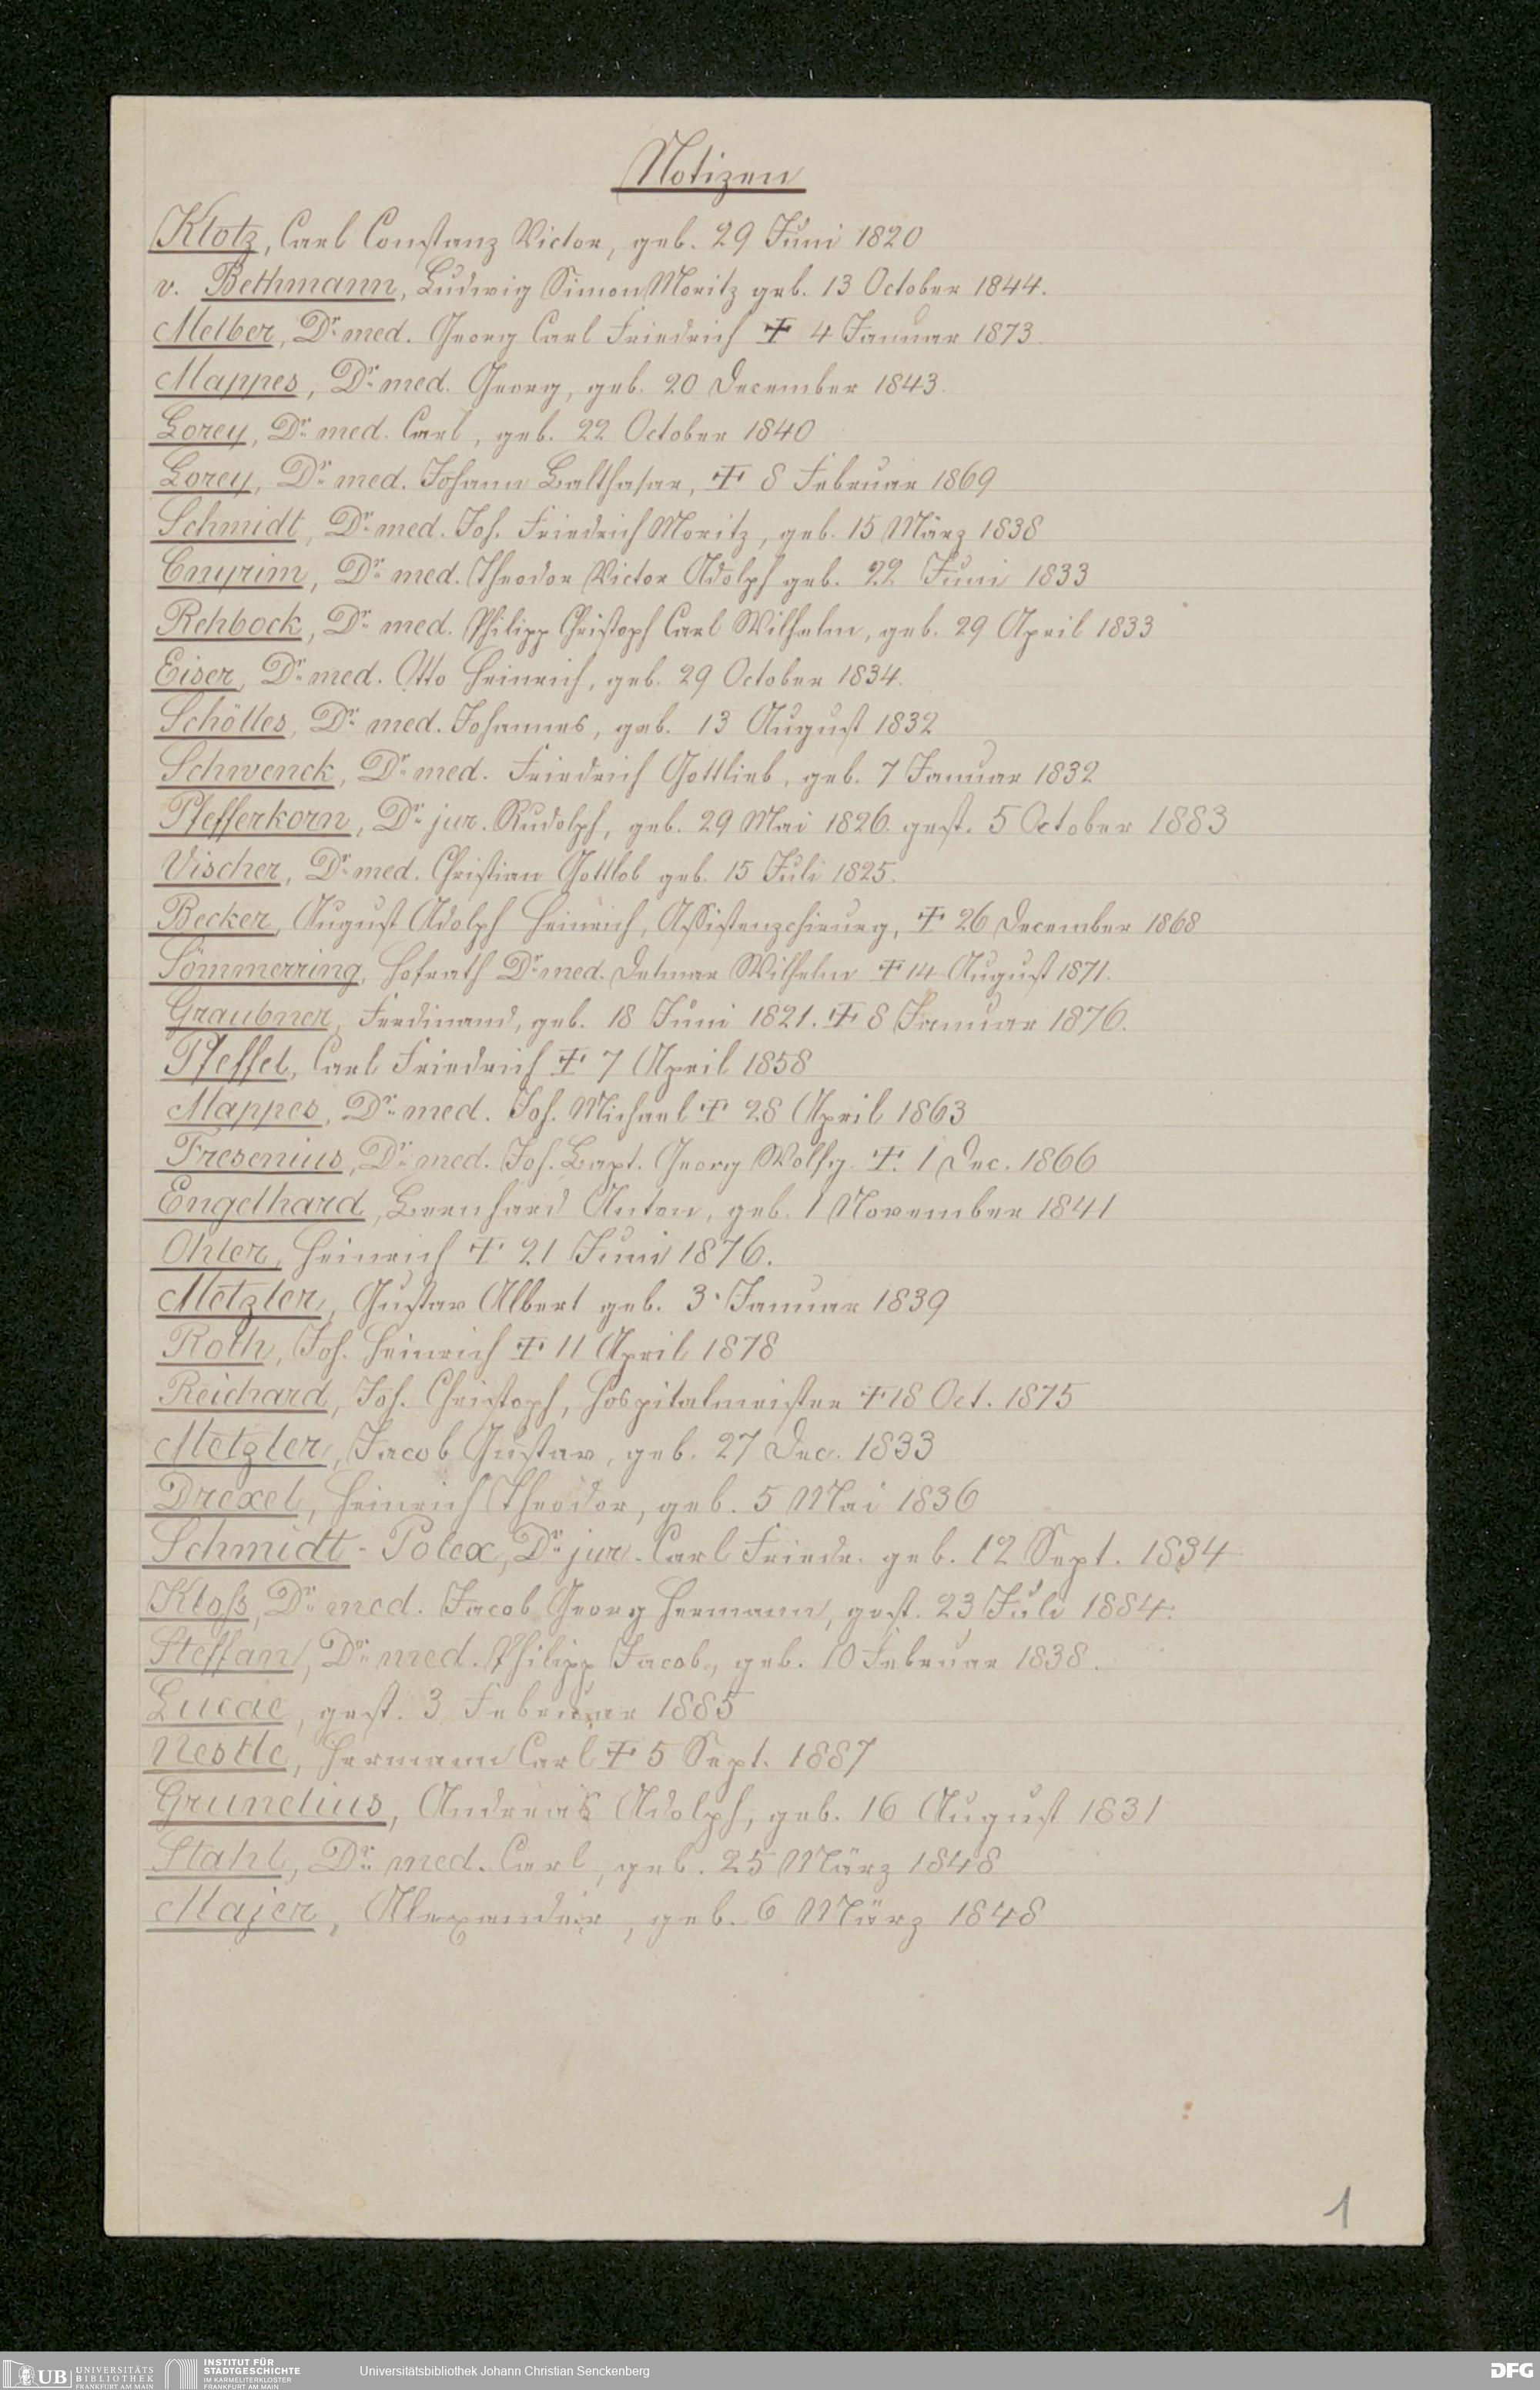 Notizen
Klotz, Carl Constanz Victor, geb. 29 Juni 1820
v. Bethmann, Ludwig Simon Moritz geb. 13 October 1844.
Melber, Dr. med. Georg Carl Friedrich ✝ 4 Januar 1873.
Mappes, Dr. med. Georg, geb. 20 December 1843.
Lorey, Dr. med. Carl, geb. 22 October 1840
Lorey, Dr. med. Johann Balthasar, ✝ 8 Februar 1869
Schmidt, Dr. med. Joh. Friedrich Moritz, geb. 15 März 1838
Cnyrim, Dr. med. Theodor Victor Adolph geb. 22 Juni 1833
Rehbock, Dr. med. Philipp Christoph Carl Wilhelm, geb. 29 April 1833
Eiser, Dr. med. Otto Heinrich, geb. 29 October 1834.
Schölles, Dr. med. Johannes, geb. 13 August 1832
Schwenck, Dr. med. Friedrich Gottlieb, geb. 7 Januar 1832
Pfefferkorn, Dr. jur. Rudolph, geb. 29 Mai 1826. gest. 5 October 1883
Vischer, Dr. med. Christian Gottlob geb. 15 Juli 1825.
Becker, August Adolph Heinrich, Assistenzchirurg, ✝ 26 December 1868
Sömmerring, Hofrath Dr. med. Detmar Wilhelm ✝ 14 August 1871.
Graubner, Ferdinand, geb. 18 Juni 1821. ✝ 8 Januar 1876.
Pfeffel, Carl Friedrich ✝ 7 April 1858
Mappes, Dr. med. Joh. Michael ✝ 28 April 1863
Fresenius, Dr. med. Joh. Bapt. Georg Wolfg. ✝ 1 Dec. 1866
Engelhard, Bernhard Anton, geb. 1 November 1841
Ohler, Heinrich ✝ 21 Juni 1876.
Metzler, Gustav Albert geb. 3. Januar 1839
Roth, Joh. Heinrich ✝ 11 April 1878
Reichard, Joh. Christoph, Hospitalmeister ✝ 18 Oct. 1875
Metzler, Jacob Gustav, geb. 27 Dec. 1833
Drexel, Heinrich Theodor, geb. 5 Mai 1836
Schmidt-Polex, Dr. jur. Carl Friedr. geb. 12 Sept. 1834
Kloß, Dr. med. Jacob Georg Hermann, gest. 23 Juli 1884.
Steffan, Dr. med. Philipp Jacob, geb. 10 Februar 1838.
Lucae, gest. 3 Februar 1885
Nestle, Hermann Carl ✝ 5 Sept. 1887
Grunelius, Andreas Adolph, geb. 16 August 1831
Stahl, Dr. med. Carl, geb. 25 März 1848
Majer, Alexander, geb. 6 März 1848
1
UB UNIVERSITÄTS BIBLIOTHEK FRANKFURT AM MAIN
INSTITUT FÜR STADTGESCHICHTE IM KARMELITERKLOSTER FRANKFURT AM MAIN
Universitätsbibliothek Johann Christian Senckenberg
DFG